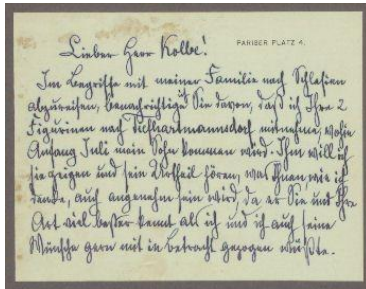 PARISER PLATZ 4.
Lieber Herr Kolbe!
Im Begriffe mit meiner Familie nach Schlesien
abzureisen, benachrichtige Sie davon, daß ich Ihre 2
Figurinen nach Tiefhartmannsdorf mitnehme, wohin
Anfang Juli mein Sohn kommen wird. Ihm will ich
sie zeigen und sein Urtheil hören, was Ihnen, wie ich
denke, auch angenehm sein wird, da er Sie und Ihre
Art viel besser kennt als ich und ich auch seine
Wünsche gern mit in betracht gezogen wüßte.